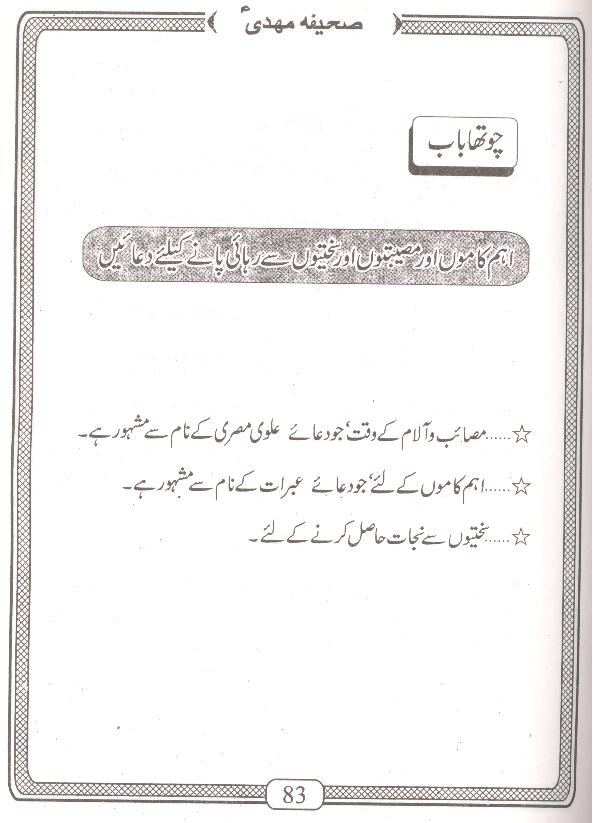 صحیفہ مہدیؑ
چوتھا باب
اہم کاموں اور مصیبتوں اور سختیوں سے رہائی پانے کیلئے دعائیں
☆......مصائب و آلام کے وقت، جو دعائے علوی مصری کے نام سے مشہور ہے۔
☆......اہم کاموں کے لئے، جو دعائے عبرات کے نام سے مشہور ہے۔
☆......سختیوں سے نجات حاصل کرنے کے لئے۔
83